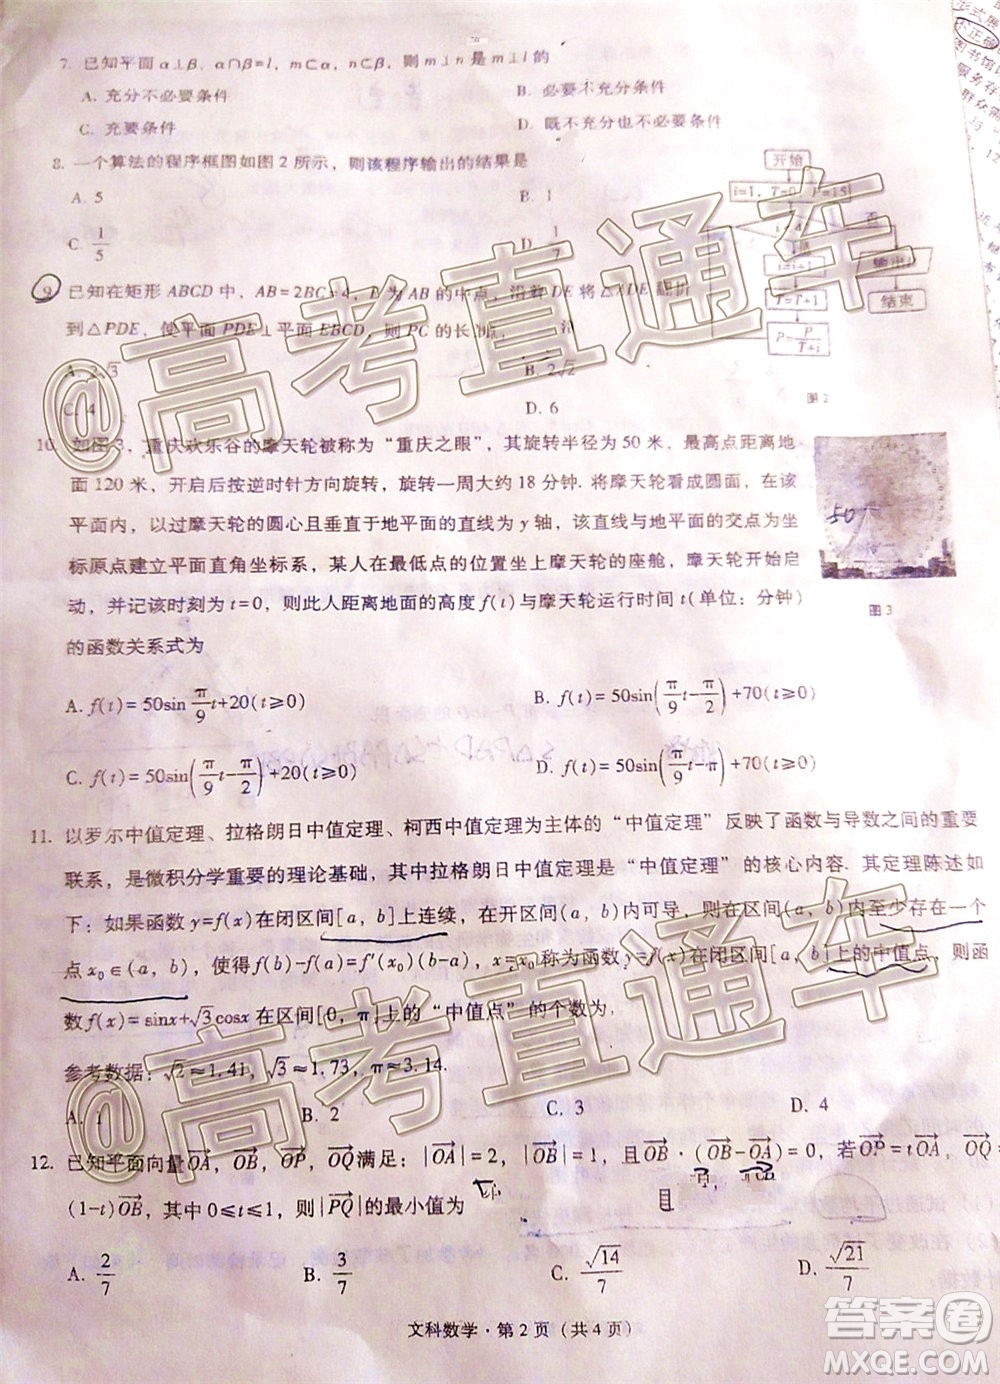 7. 已知平面 α⊥β, α∩β=l, m⊂α, n⊂β, 则 m⊥n 是 m⊥l 的
A. 充分不必要条件
B. 必要不充分条件
C. 充要条件
D. 既不充分也不必要条件
8. 一个算法的程序框图如图 2 所示, 则该程序输出的结果是
A. 5
B. 1
C. 1/5
D. 1/7
开始
i=1, T=0, P=15
否
是
输出
i=i+1
T=T+i
结束
P=P/(T+i)
图 2
9. 已知在矩形 ABCD 中, AB=2BC=4, E 为 AB 的中点, 沿着 DE 将 △ADE 翻折
到 △PDE, 使平面 PDE⊥平面 EBCD, 则 PC 的长
A. 2√3
B. 2√2
C. 4
D. 6
10. 如图 3, 重庆欢乐谷的摩天轮被称为“重庆之眼”, 其旋转半径为 50 米, 最高点距离地
面 120 米, 开启后按逆时针方向旋转, 旋转一周大约 18 分钟. 将摩天轮看成圆面, 在该
平面内, 以过摩天轮的圆心且垂直于地平面的直线为 y 轴, 该直线与地平面的交点为坐
标原点建立平面直角坐标系, 某人在最低点的位置坐上摩天轮的座舱, 摩天轮开始启
动, 并记该时刻为 t=0, 则此人距离地面的高度 f(t) 与摩天轮运行时间 t(单位: 分钟)
的函数关系式为
50
图 3
A. f(t)=50sin π/9 t+20(t≥0)
B. f(t)=50sin(π/9 t-π/2)+70(t≥0)
C. f(t)=50sin(π/9 t-π/2)+20(t≥0)
D. f(t)=50sin(π/9 t-π)+70(t≥0)
11. 以罗尔中值定理、拉格朗日中值定理、柯西中值定理为主体的“中值定理”反映了函数与导数之间的重要
联系, 是微积分学重要的理论基础, 其中拉格朗日中值定理是“中值定理”的核心内容. 其定理陈述如
下: 如果函数 y=f(x) 在闭区间[a, b]上连续, 在开区间(a, b)内可导, 则在区间(a, b)内至少存在一个
点 x₀∈(a, b), 使得 f(b)-f(a)=f′(x₀)(b-a), x=x₀ 称为函数 y=f(x) 在闭区间[a, b]上的中值点, 则函
数 f(x)=sinx+√3cosx 在区间[0, π]上的“中值点”的个数为
参考数据: √2≈1.41, √3≈1.73, π≈3.14.
A. 1
B. 2
C. 3
D. 4
12. 已知平面向量 OA, OB, OP, OQ 满足: |OA|=2, |OB|=1, 且 OB·(OB-OA)=0, 若 OP=tOA, OQ=
(1-t)OB, 其中 0≤t≤1, 则|PQ|的最小值为
A. 2/7
B. 3/7
C. √14/7
D. √21/7
文科数学·第 2 页 (共 4 页)
@高考直通车
@高考直通车
答案圈
MXQE.COM